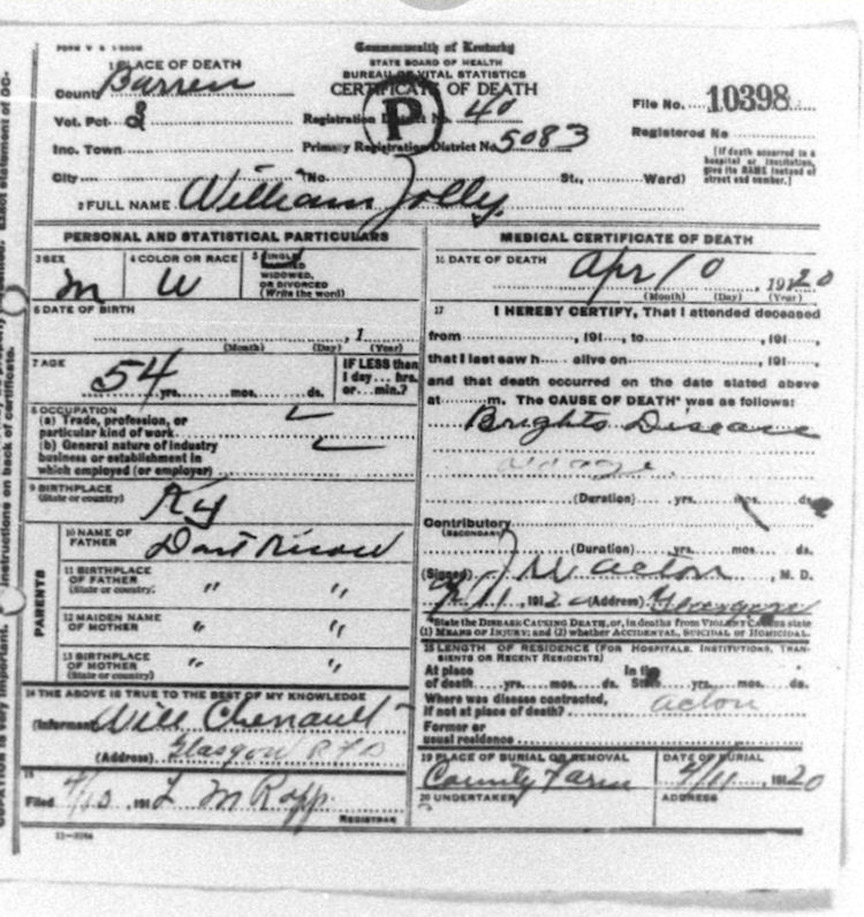 Commonwealth of Kentucky
STATE BOARD OF HEALTH
BUREAU OF VITAL STATISTICS
CERTIFICATE OF DEATH
P
1 PLACE OF DEATH
County Barren
Vot. Pct 2
Inc. Town
City No. St., Ward)
Registration District No. 40
Primary Registration District No. 5083
File No. 10398
Registered No
[If death occurred in a
hospital or institution,
give its NAME instead of
street and number.]
2 FULL NAME William Jolly
PERSONAL AND STATISTICAL PARTICULARS
3 SEX
m
4 COLOR OR RACE
W
5 SINGLE
MARRIED
WIDOWED,
OR DIVORCED
(Write the word)
6 DATE OF BIRTH
, 1
(Month) (Day) (Year)
7 AGE
54 yrs. mos. ds.
IF LESS than
1 day... hrs.
or... min.?
8 OCCUPATION
(a) Trade, profession, or
particular kind of work
(b) General nature of industry
business or establishment in
which employed (or employer)
9 BIRTHPLACE
(State or country)
Ky
PARENTS
10 NAME OF
FATHER
Dont Know
11 BIRTHPLACE
OF FATHER
(State or country)
" "
12 MAIDEN NAME
OF MOTHER
" "
13 BIRTHPLACE
OF MOTHER
(State or country)
" "
14 THE ABOVE IS TRUE TO THE BEST OF MY KNOWLEDGE
(Informant Will Chenault
(Address) Glasgow RFD
15
Filed 4/10, 191 L M Ropp
REGISTRAR
MEDICAL CERTIFICATE OF DEATH
16 DATE OF DEATH
Apr 10, 1920
(Month) (Day) (Year)
17 I HEREBY CERTIFY, That I attended deceased
from , 191..., to , 191...,
that I last saw h alive on , 191...,
and that death occurred on the date stated above
at m. The CAUSE OF DEATH* was as follows:
Brights Disease
(Duration) yrs. mos. ds.
Contributory
(SECONDARY)
(Duration) yrs. mos. ds.
(Signed) J W Acton, M. D.
11, 1912 (Address)
*State the DISEASE CAUSING DEATH, or, in deaths from VIOLENT CAUSES state
(1) MEANS OF INJURY; and (2) whether ACCIDENTAL, SUICIDAL or HOMICIDAL.
18 LENGTH OF RESIDENCE (FOR HOSPITALS, INSTITUTIONS, TRAN-
SIENTS OR RECENT RESIDENTS)
At place In the
of death yrs. mos. ds. State yrs. mos. ds.
Where was disease contracted,
if not at place of death? acton
Former or
usual residence
19 PLACE OF BURIAL OR REMOVAL
County Farm
DATE OF BURIAL
4/11 1920
20 UNDERTAKER
ADDRESS